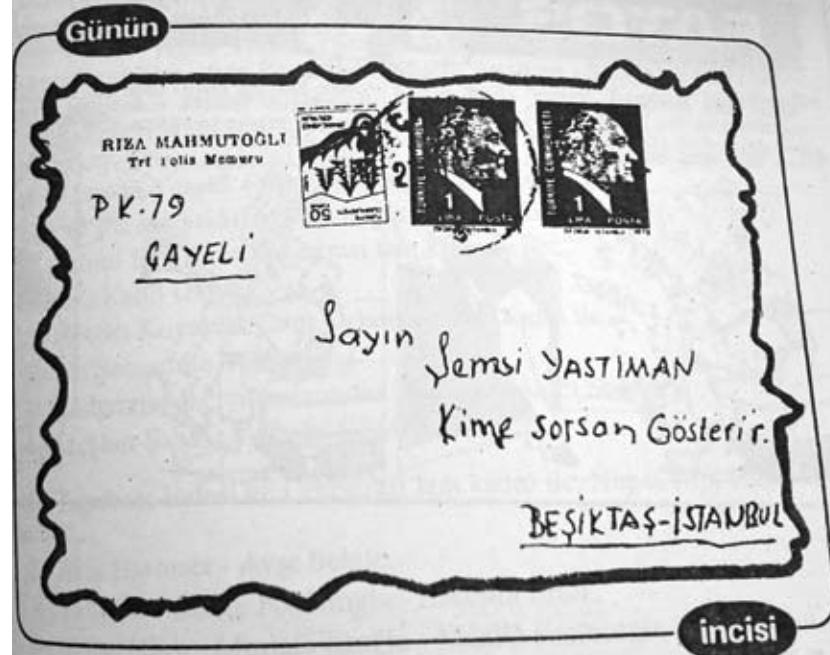 Günün
RIZA MAHMUTOĞLI
Trf Polis Memuru
PK.79
ÇAYELİ
TÜRKİYE CUMHURİYETİ
1
LİRA POSTA
TÜRKİYE CUMHURİYETİ
1
LİRA POSTA
50
2
Sayın
Şemsi YASTIMAN
Kime sorsan Gösterir.
BEŞİKTAŞ-İSTANBUL
incisi